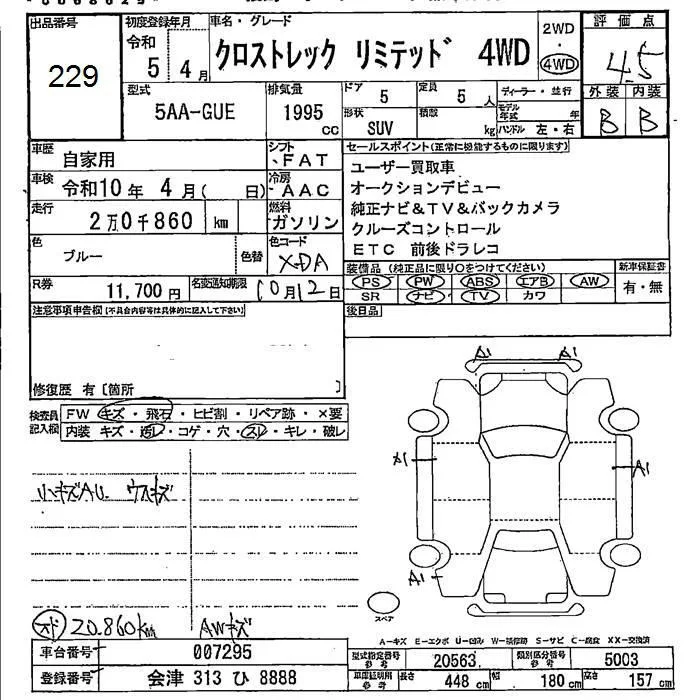 出品番号 初度登録年月 車名・グレード 評価点
229 令和 5年 4月 クロストレック リミテッド 4WD 2WD・4WD 4.5
型式 排気量 ドア 定員 ディーラー・並行 外装 内装
5AA-GUE 1995cc 5 5人 モデル年式 年 B B
形状 積載
SUV kg ハンドル 左・右
車歴 シフト セールスポイント(正常に機能するものに限ります)
自家用 FAT ユーザー買取車
車検 冷房 オークションデビュー
令和10年 4月( 日) AAC 純正ナビ&TV&バックカメラ
走行 燃料 クルーズコントロール
2万0千860 km ガソリン ETC 前後ドラレコ
色 ブルー 色替 色コード XDA
装備品(純正品に限り○をつけてください) 新車保証書
PS PW ABS エアB AW 有・無
SR ナビ TV カワ
R券 11,700円 名変通知期限 10月12日 後日品
注意事項申告欄(不具合内容等は具体的に記入して下さい)
修復歴 有〔箇所 〕
検査員記入欄 FW キズ・飛石・ヒビ割・リペア跡・×要
内装 キズ・汚レ・コゲ・穴・スレ・キレ・破レ
A1 A1
X1 A1
A1
小キズAU ウスキズ
スペア
メド 20.860km AWキズ
A-キズ E-エクボ U-凹み W-補修跡 S-サビ C-腐食 XX-交換済
車台番号 007295 型式指定番号 参考 20563 類別区分番号 参考 5003
登録番号 会津 313 ひ 8888 車庫証明用 参考 長さ 448cm 幅 180cm 高さ 157cm